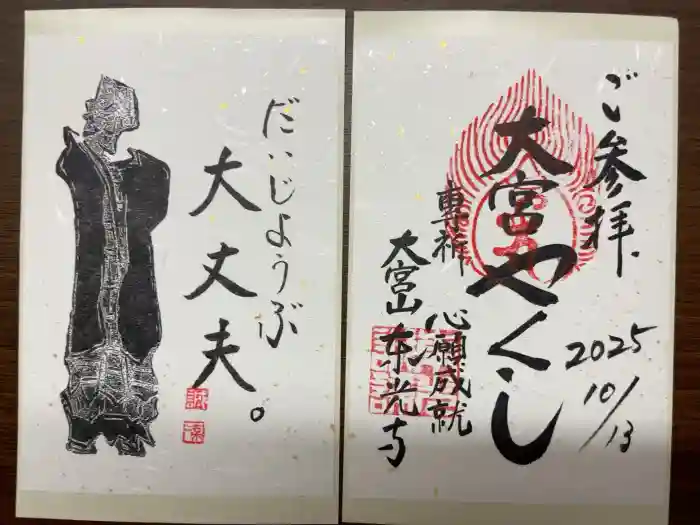 だいじようぶ
大丈夫。
ご参拝
2025
10/13
大宮やくし
専祈
心願成就
大宮山東光寺